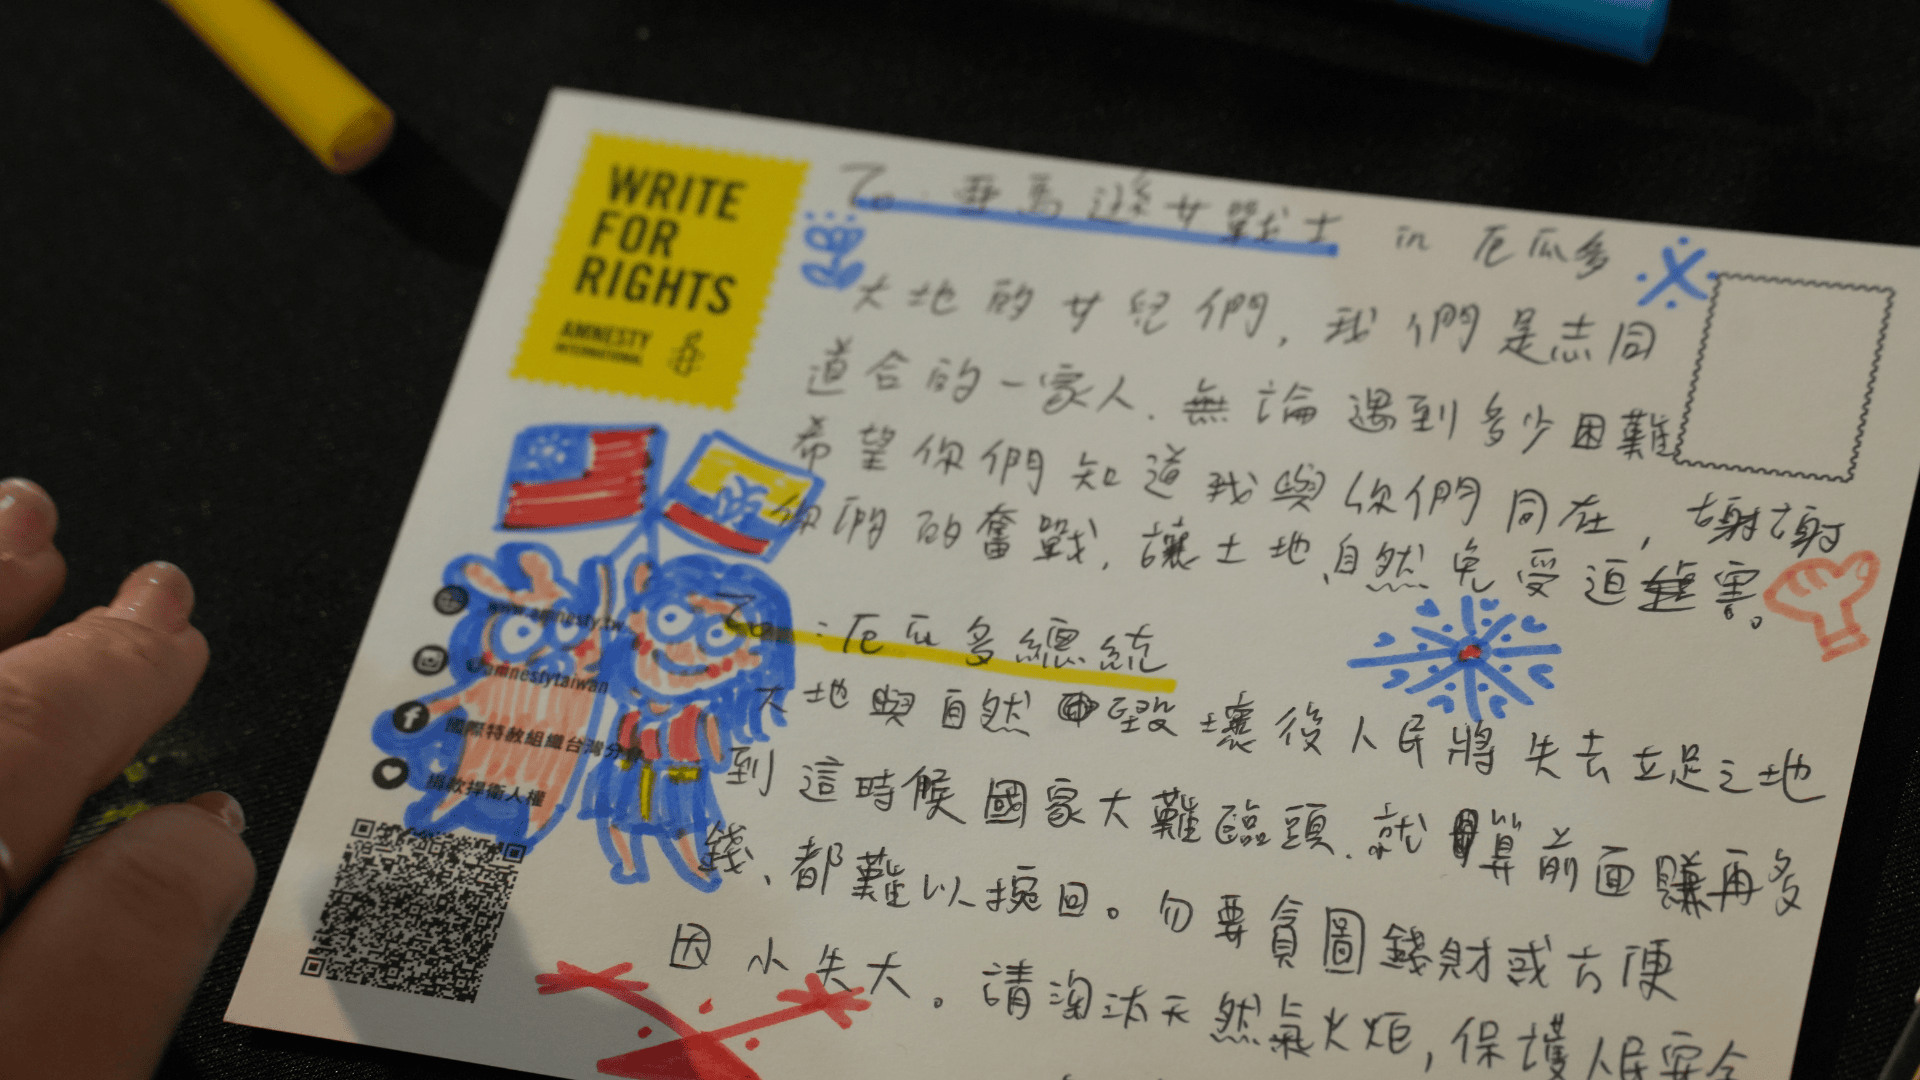 WRITE
FOR
RIGHTS
AMNESTY
INTERNATIONAL
To: 亞馬遜女戰士 in 厄瓜多
大地的女兒們,我們是志同
道合的一家人.無論遇到多少困難
希望你們知道我與你們同在,謝謝
你們的奮戰,讓土地、自然免受迫害。
To:厄瓜多總統
大地與自然毀壞後人民將失去立足之地
到這時候國家大難臨頭.就算前面賺再多
錢、都難以挽回。勿要貪圖錢財或方便
因小失大。請淘汰天然氣火炬,保護人民安全
www.amnesty.tw
@amnestytaiwan
國際特赦組織台灣分會
捐款捍衛人權